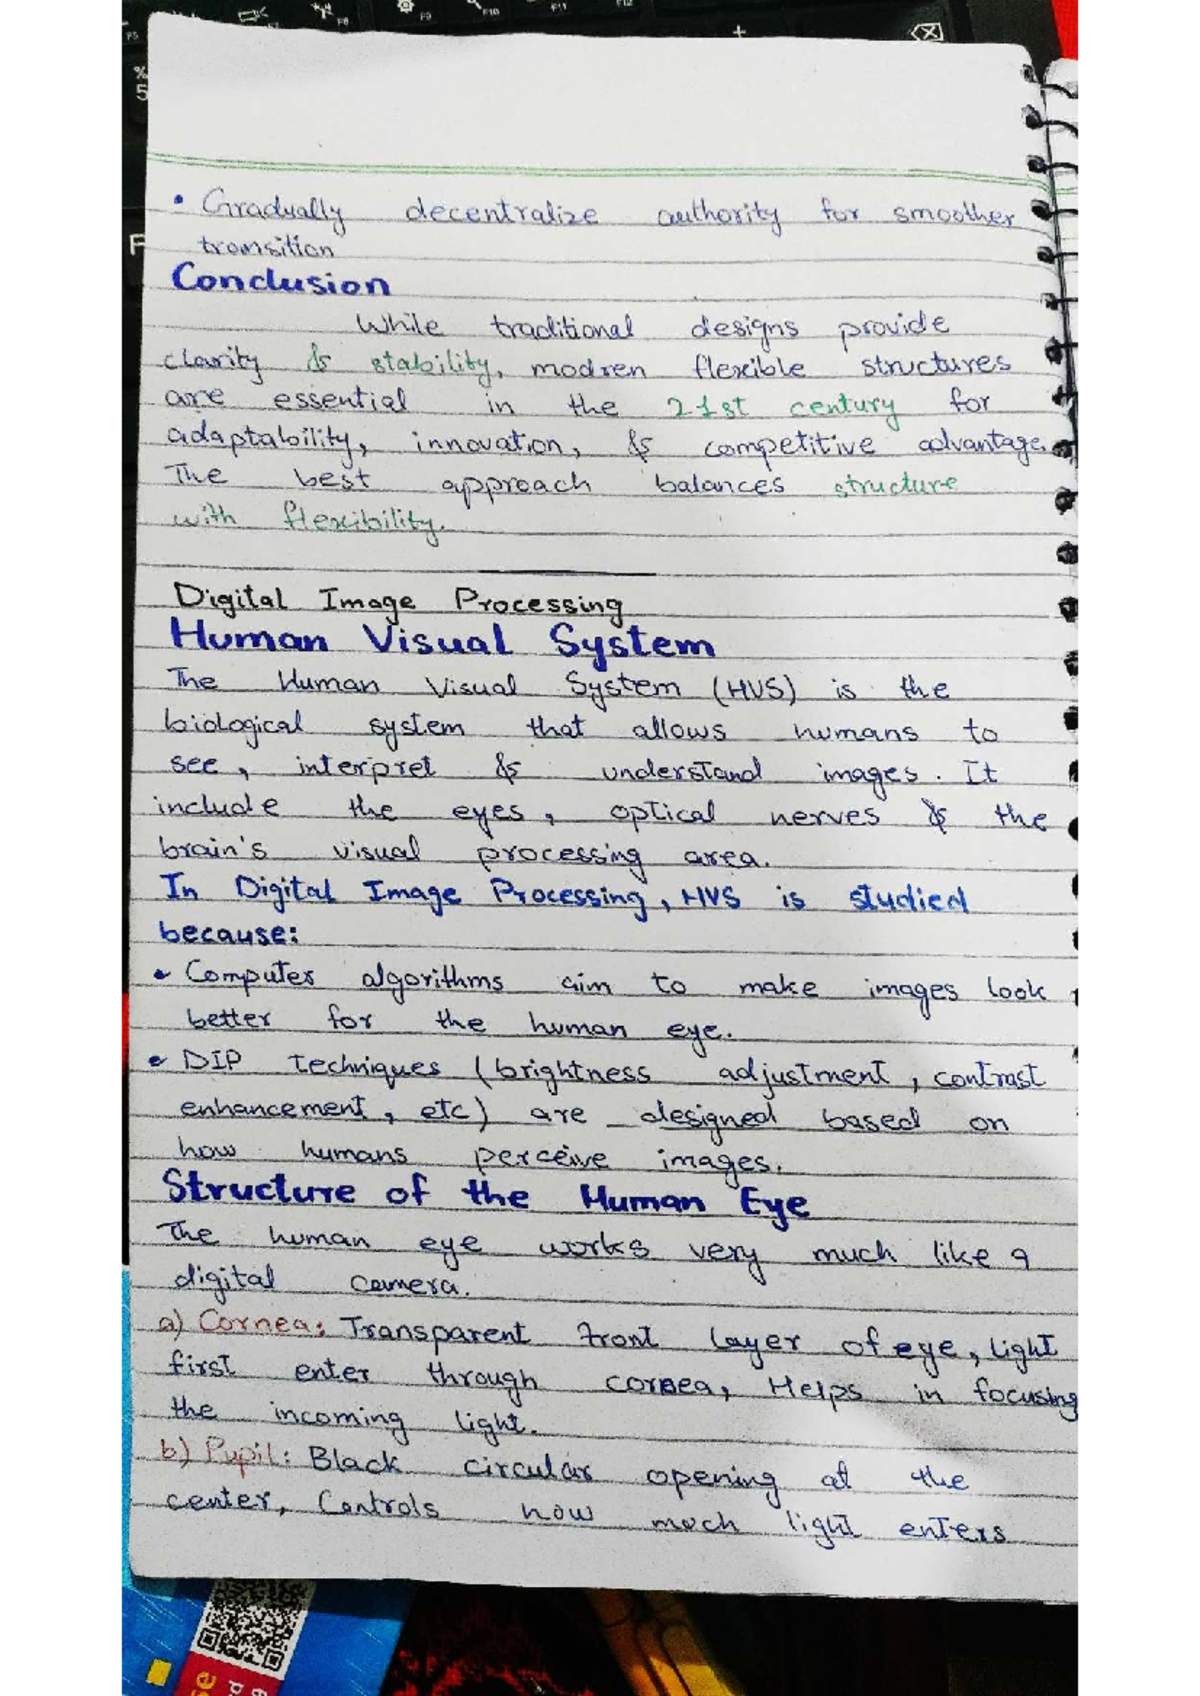 F5 F8 F9 F10 F11 F12
%
5
+
F
• Gradually decentralize authority for smoother
transition
Conclusion
While traditional designs provide
clarity & stability, modren flexible structures
are essential in the 21st century for
adaptability, innovation, & competitive advantage.
The best approach balances structure
with flexibility.
Digital Image Processing
Human Visual System
The Human Visual System (HVS) is the
biological system that allows humans to
see, interpret & understand images. It
include the eyes, optical nerves & the
brain's visual processing area.
In Digital Image Processing, HVS is studied
because:
• Computer algorithms aim to make images look
better for the human eye.
• DIP techniques (brightness adjustment, contrast
enhancement, etc) are designed based on
how humans perceive images.
Structure of the Human Eye
The human eye works very much like a
digital camera.
a) Cornea: Transparent front layer of eye, light
first enter through cornea, Helps in focusing
the incoming light.
b) Pupil: Black circular opening at the
center, Controls how much light enters